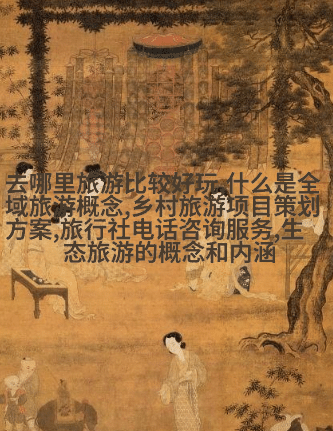 去哪里旅游比较好玩,什么是全
域旅游概念,乡村旅游项目策划
方案,旅行社电话咨询服务,生
态旅游的概念和内涵